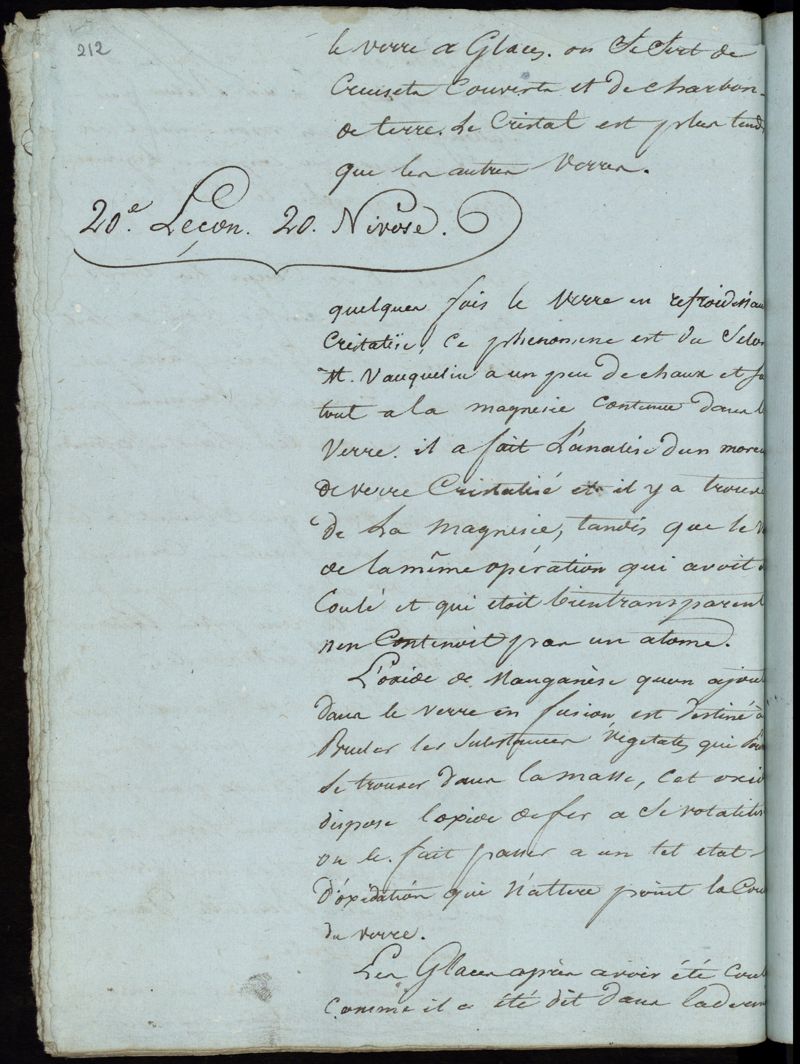 212
le verre a Glaces. on se sert de
Creusets Couverts et de charbon
de terre. Le Cristal est plus tend
que les autres Verres.
20.e Leçon. 20. Nivose.
quelques fois le Verre en refroidissan
Cristalise, Ce phenomene est du Selon
M. Vauquelin a un peu de chaux et su
tout a la magnesie contenue dans l
Verre. il a fait L'analise d'un morce
de verre Cristalisé et il y a trouvé
de La magnesie, tandis que le v
de la même opération qui avoit
Coulé et qui etoit bien transparent
n'en Contenoit pas un atome.
L'oxide de Manganèse qu'on ajout
dans le verre en fusion, est destiné à
Bruler les Substances végetales qui
se trouver dans la masse, Cet oxid
dispose l'oxide de fer a se volatilis
ou le fait passer a un tel etat
D'oxidation qu'il n'altere point la Cou
du verre.
Les Glaces après avoir été Coul
Comme il a été dit dans la dern